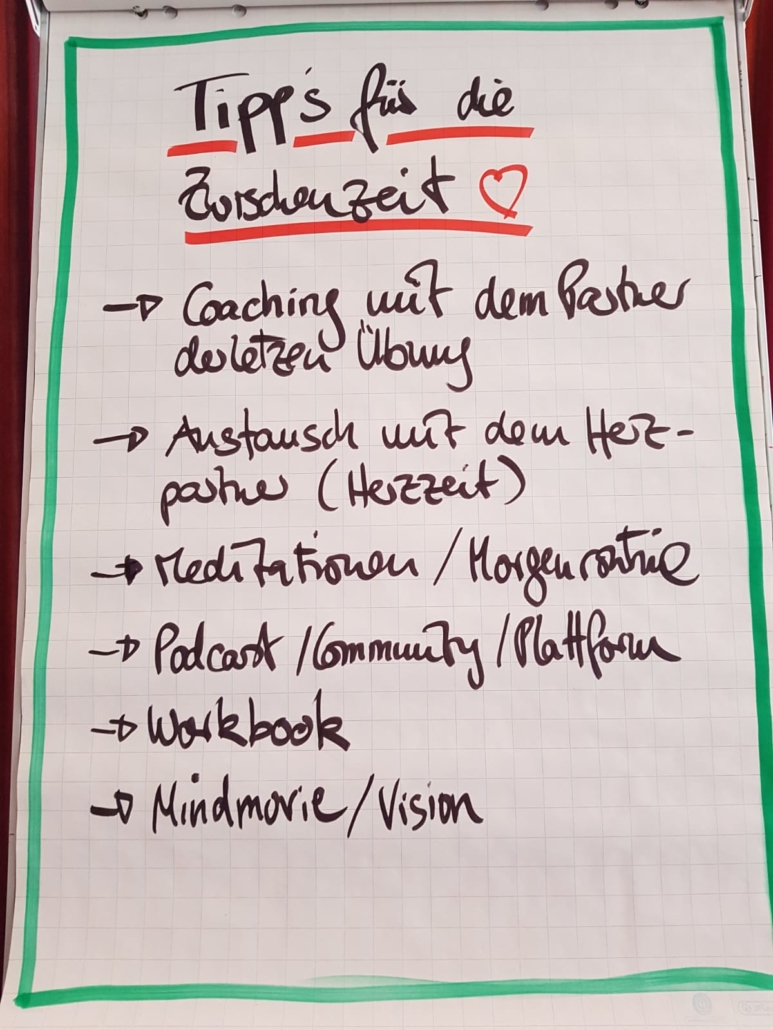 Tipp's für die
Zwischenzeit ♡
→ Coaching mit dem Partner
der letzen Übung
→ Austausch mit dem Herz-
partner (Herzzeit)
→ Meditationen / Morgenroutine
→ Podcast / Community / Plattform
→ Workbook
→ Mindmovie / Vision